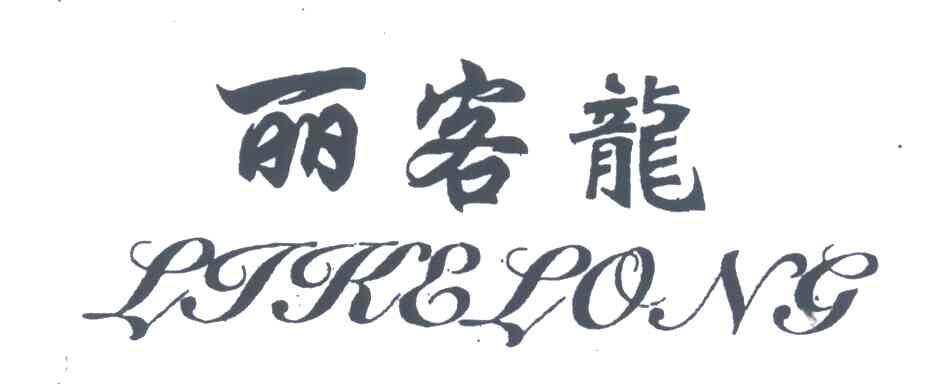 丽客龍
LIKELONG